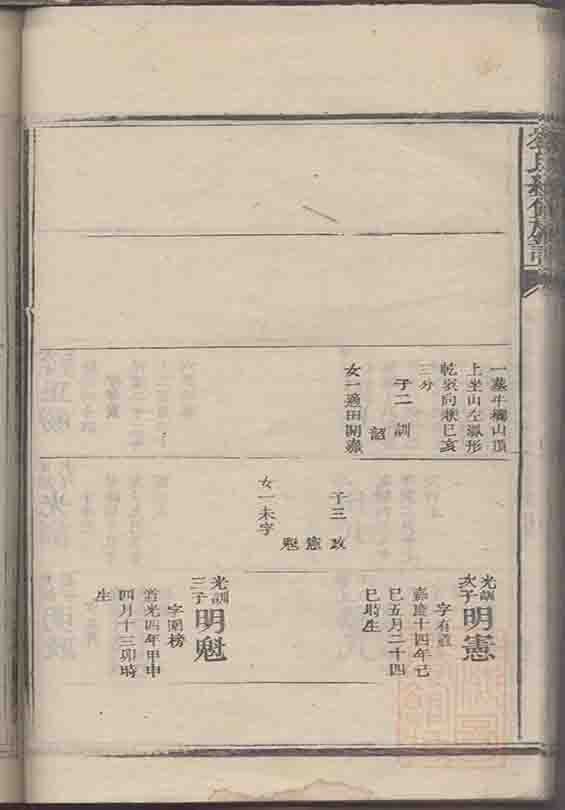 一墓牛欄山頂
上坐山左
乾巽向兼巳亥
三分
子二訓
韶
女一適田開
子三政
憲
魁
女一未字
光訓
次子
明憲
字有道
嘉慶十四年己
巳五月二十四
巳時生
光訓
三子
明魁
字開榜
道光四年甲申
四月十三卯時
生